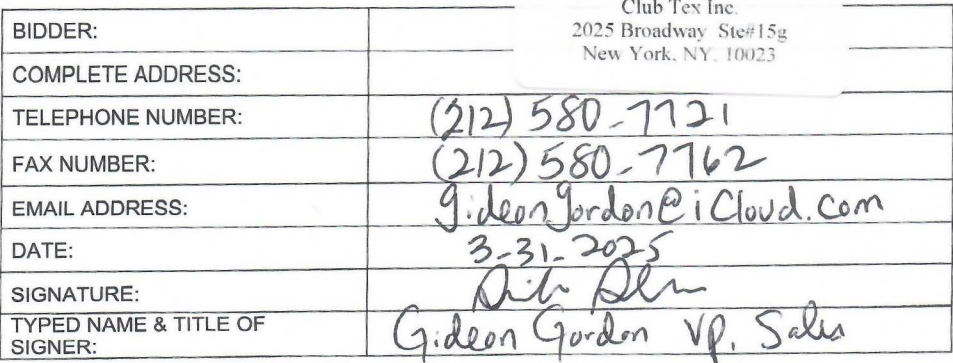 Club Tex Inc.
2025 Broadway Ste#15g
New York, NY. 10023
BIDDER:
COMPLETE ADDRESS:
TELEPHONE NUMBER: (212) 580-7721
FAX NUMBER: (212) 580-7762
EMAIL ADDRESS: gideongordon@iCloud.com
DATE: 3-31-2025
SIGNATURE:
TYPED NAME & TITLE OF
SIGNER: Gideon Gordon VP, Sales